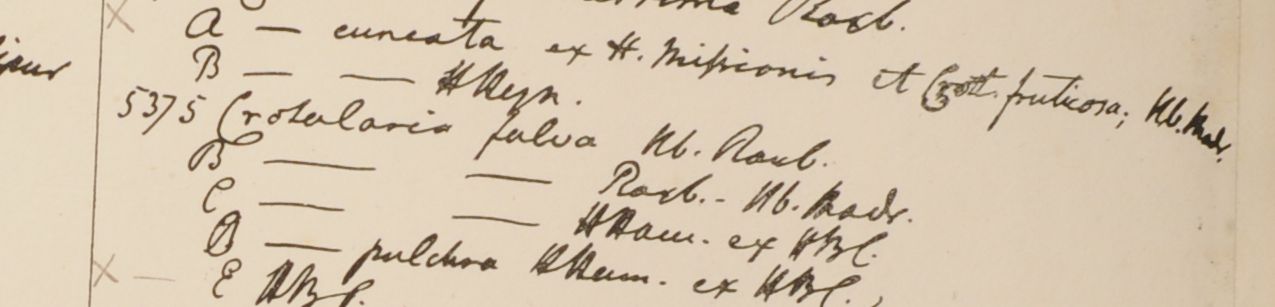 Roxb.
A — cuneata ex H. Missionis et Crott. fruticosa; Hb. Madr.
B — — HHeyn.
5375 Crotalaria fulva Hb. Roxb.
B — — Roxb. - Hb. Madr.
C — — HHam. ex HBC.
D — pulchra HHam. ex HBC.,
E HBC.